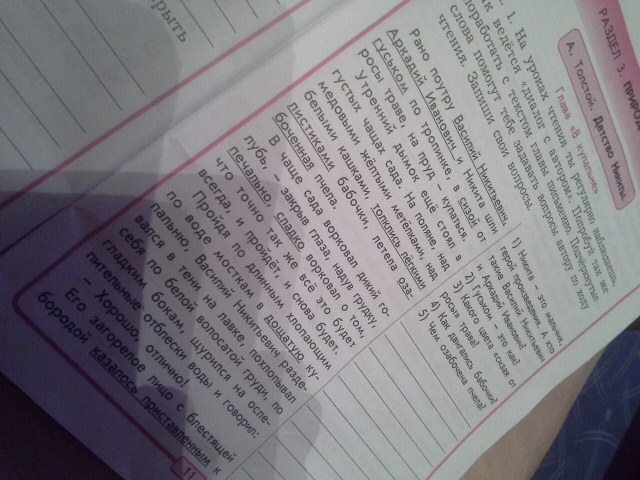 РАЗДЕЛ 3. ПРИРОД
А. Толстой. Детство Никиты.
Глава «В купальне»
1. На уроках чтения ты регулярно наблюдаешь,
как ведётся «диалог с автором». Попробуй так же
поработать с текстом главы письменно. Подчеркнутые
слова помогут тебе задавать вопросы автору по ходу
чтения. Запиши свои вопросы.
Рано поутру Василий Никитьевич,
Аркадий Иванович и Никита шли
гуськом по тропинке, в сизой от
росы траве, на пруд – купаться.
Утренний дымок ещё стоял в
густых чащах сада. На поляне, над
медовыми жёлтыми метёлками, над
белыми кашками, толклись лёгкими
листиками бабочки, летела оза-
боченная пчела.
В чаще сада ворковал дикий го-
лубь – закрыв глаза, надув грудку,
печально, сладко ворковал о том,
что точно так же всё это будет
всегда, и пройдёт, и снова будет.
Пройдя по длинным, хлопающим
по воде мосткам в дощатую ку-
пальню, Василий Никитьевич разде-
вался в тени на лавке, похлопывал
себя по белой волосатой груди, по
гладким бокам, щурился на осле-
пительные отблески воды и говорил:
– Хорошо, отлично!
Его загорелое лицо с блестящей
бородой казалось приставленным к
1) Никита – это мальчик,
герой произведения, а кто
такие Василий Никитьевич
и Аркадий Иванович?
2) Гуськом – это как?
3) Какого цвета «сизая от
росы» трава?
4) Как двигались бабочки?
5) Чем озабочена пчела?
11
крыть